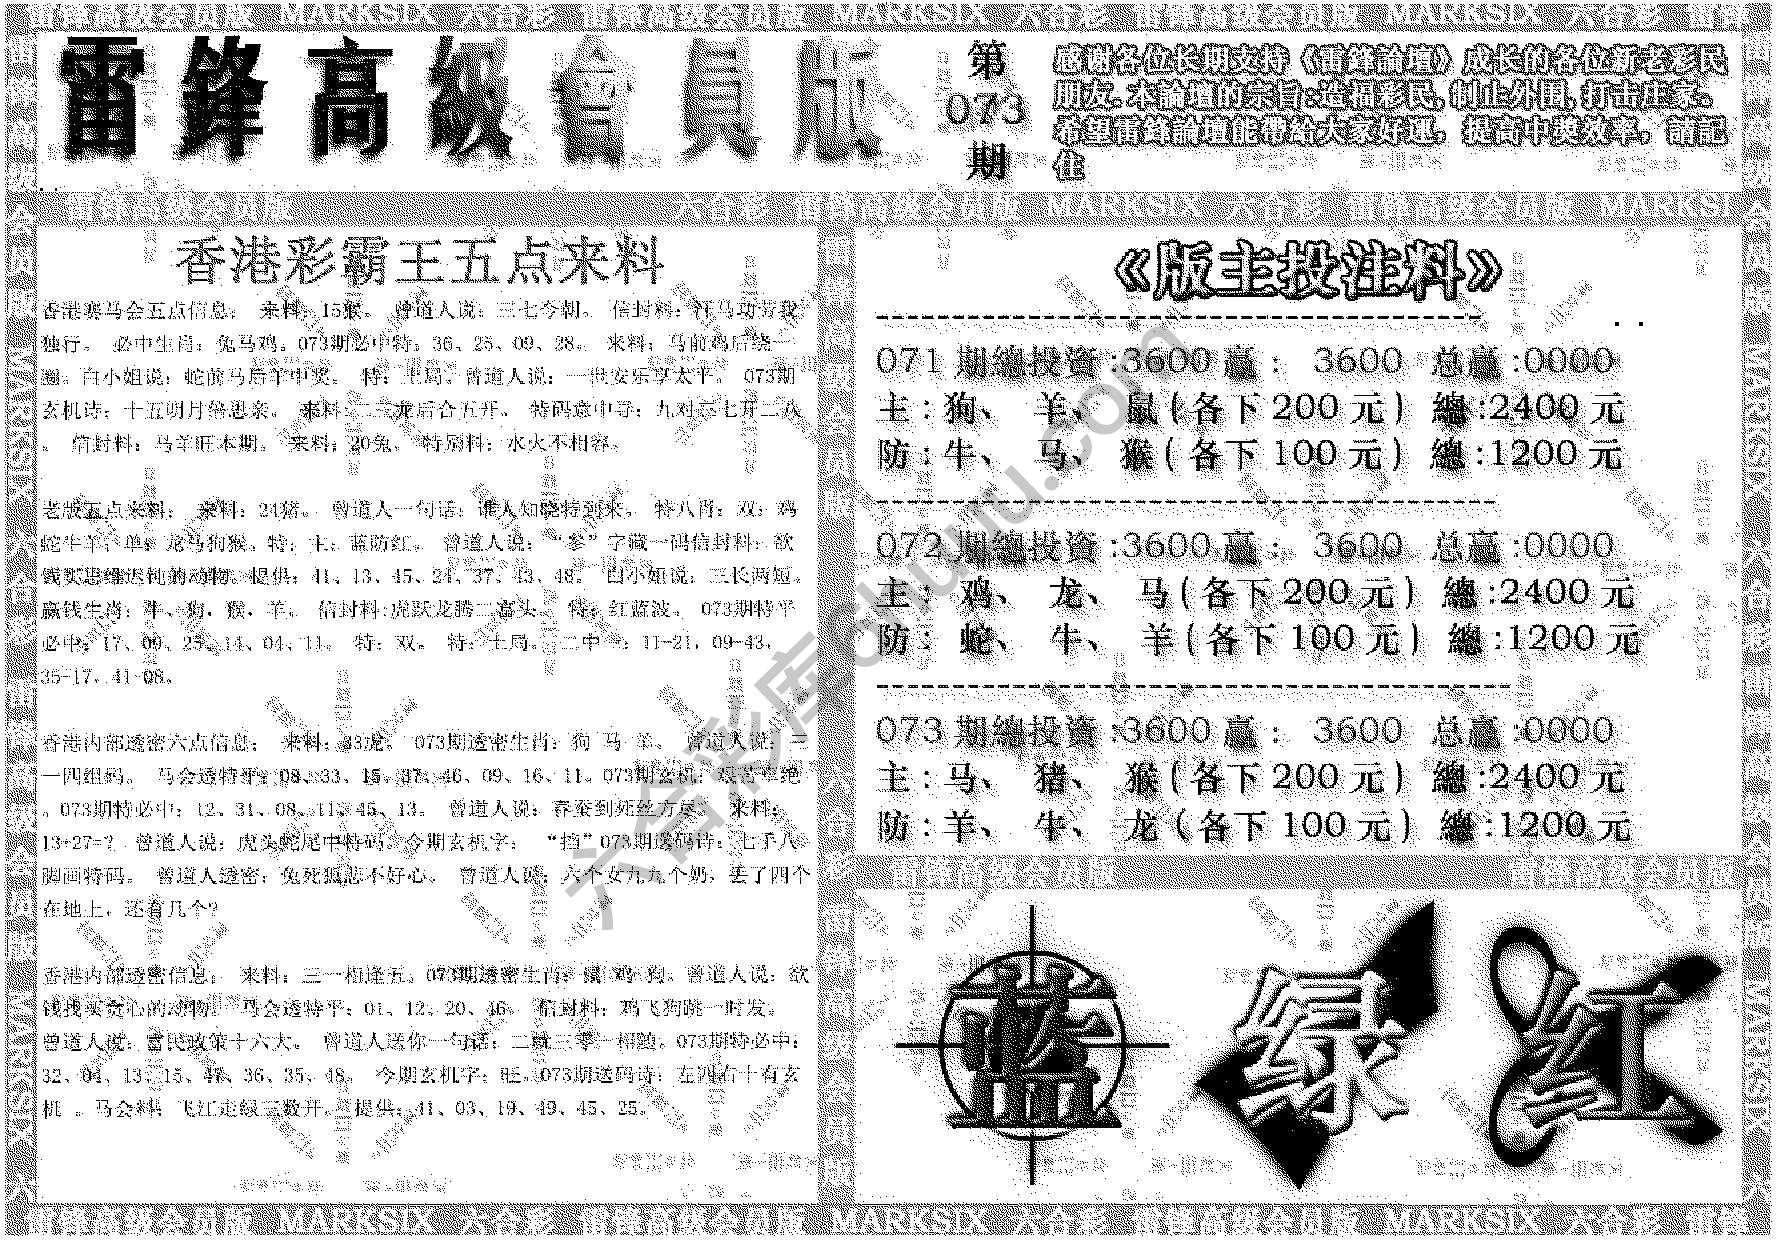 雷鋒高級會員版
第
073
期
感谢各位长期支持《雷鋒論壇》成长的各位新老彩民
朋友.本論壇的宗旨:造福彩民,制止外围,打击庄家.
希望雷鋒論壇能帶給大家好運，提高中奖效率，請記
住
香港彩霸王五点来料
香港赛马会五点信息： 来料：15猴。 曾道人说：三七今朝。 信封料：汗马功劳我
独行。 必中生肖：兔马鸡。073期必中特：36、25、09、28。 来料：马前鸡后绕一
圈。白小姐说：蛇前马后羊中奖。 特：土局。曾道人说：一世安乐享太平。 073期
玄机诗：十五明月倍思亲。 来料：二三龙后合五开。 特码意中寻：九对 七开二八
。 信封料：马羊旺本期。 来料：20兔。 特别料：水火不相容。
老版五点来料： 来料：24猪。 曾道人一句话：谁人知晓特到来。 特八肖：双：鸡
蛇牛羊；单：龙马狗猴。特：主：蓝防红。 曾道人说：“参”字藏一码信封料：欲
钱买思维迟钝的动物。提供：41、13、45、24、37、43、48。 白小姐说：三长两短。
赢钱生肖：牛、狗，猴，羊。 信封料:虎跃龙腾二高头。 特：红蓝波。 073期特平
必中：17、09、25、14、04、11。 特：双。 特：土局。 二中一：11-21，09-43，
35-17，41-08。
香港内部透密六点信息： 来料：33虎。 073期透密生肖：狗 马 羊。 曾道人说：三
一四组码。 马会透特平：08、33、15、37、46、09、16、11。073期玄机：艰苦卓绝
。073期特必中：12、31、08、11、45、13。 曾道人说：春蚕到死丝方尽。 来料：
13+27=? 曾道人说：虎头蛇尾中特码。今期玄机字： “挡”073期送码诗：七手八
脚画特码。 曾道人透密：兔死狐悲不好心。 曾道人说：六个女九九个奶，丢了四个
在地上，还有几个?
香港内部透密信息： 来料：三一相逢五。073期透密生肖：鼠 鸡 狗。曾道人说：欲
钱找买贪心的动物。 马会透特平：01、12、20、46。 信封料：鸡飞狗跳一时发。
曾道人说：富民政策十六大。 曾道人送你一句话：二跳三零一相随。073期特必中：
32、04、13、15、47、36、35、48。 今期玄机字：旺。073期送码诗：左四右十有玄
机 。马会料： 飞江走绿三数开。 提供：41、03、19、49、45、25。
《版主投注料》
071 期總投資:3600 赢： 3600 总赢:0000
主:狗、 羊、 鼠(各下 200 元) 總:2400 元
防:牛、 马、 猴(各下 100 元) 總:1200 元
072 期總投資:3600 赢： 3600 总赢:0000
主: 鸡、 龙、 马(各下 200 元) 總:2400 元
防: 蛇、 牛、 羊(各下 100 元) 總:1200 元
073 期總投資:3600 赢： 3600 总赢:0000
主:马、 猪、 猴(各下 200 元) 總:2400 元
防:羊、 牛、 龙(各下 100 元) 總:1200 元
蓝 绿 红
六合彩库 ohuuu.com